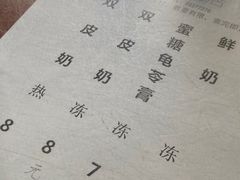 双皮奶 热 8
双皮奶 冻 8 元
蜜糖龟苓膏 冻 7
鲜奶 冻